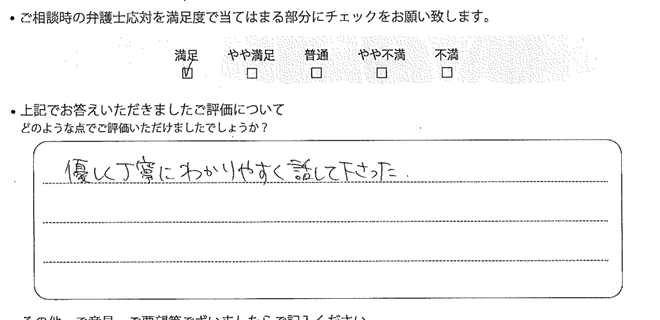 • ご相談時の弁護士応対を満足度で当てはまる部分にチェックをお願い致します。
満足 やや満足 普通 やや不満 不満
☑ □ □ □ □
• 上記でお答えいただきましたご評価について
どのような点でご評価いただけましたでしょうか？
優しく丁寧にわかりやすく話して下さった.
その他、ご意見、ご要望等ございましたらご記入ください